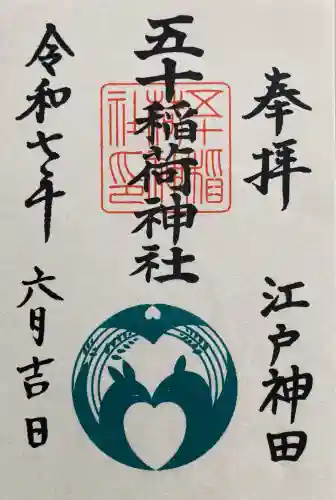 奉拝
江戸神田
五十稲荷神社
五十稲荷神社印
令和七年
六月吉日